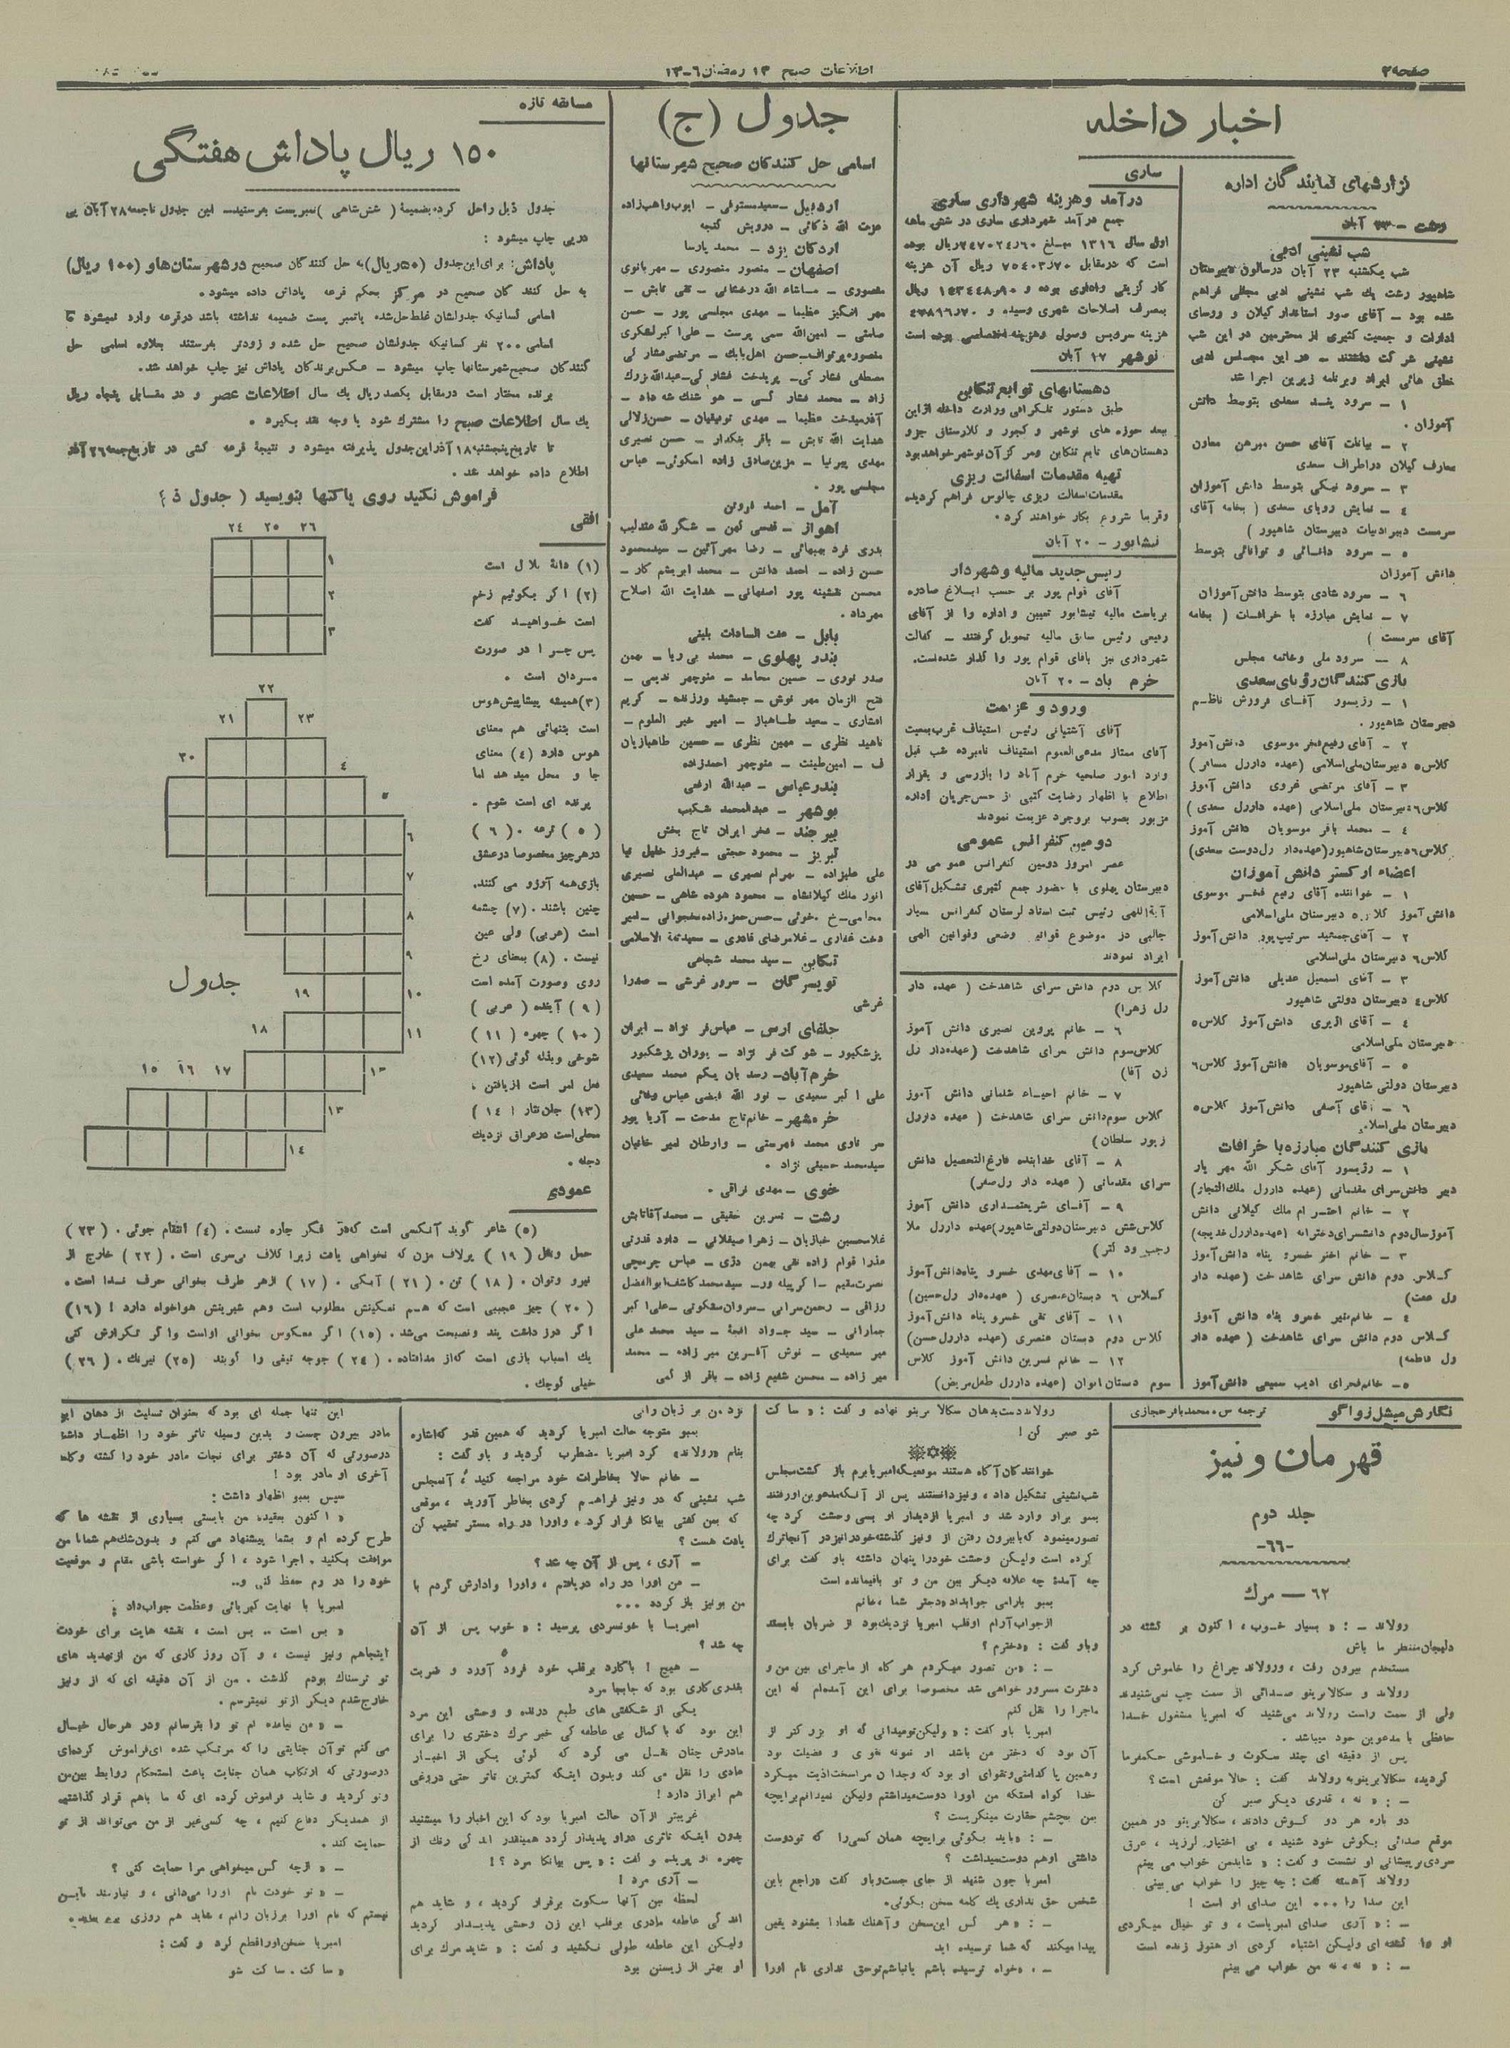 صفحه ۲
اطلاعات صبح ۱۳ رمضان ۱۳۰۶
اخبار داخله
گزارشهای نمایندگان اداره
رشت - ۲۳ آبان
شب نشینی ادبی
شب یکشنبه ۲۳ آبان در سالون دبیرستان
شاهپور رشت یك شب نشینی ادبی مجللی فراهم
شده بود – آقای صور استاندار گیلان و روسای
ادارات و جمعیت کثیری از محترمین در این شب
نشینی شرکت داشتند – در این مجلس ادبی
خطق هائی ایراد و برنامه زیرین اجرا شد
۱ – سرود پند سعدی بتوسط دانش
آموزان .
۲ – بیانات آقای حسن میرهن معاون
معارف گیلان در اطراف سعدی
۳ – سرود نیکی بتوسط دانش آموزان
۴ – نمایش رویای سعدی ( بخامه آقای
سرمست دبیر ادبیات دبیرستان شاهپور )
۵ – سرود دانائی و توانائی بتوسط
دانش آموزان
۶ – سرود شادی بتوسط دانش آموزان
۷ – نمایش مبارزه با خرافات ( بخامه
آقای سرمست )
۸ – سرود ملی و خاتمه مجلس
بازی کنندگان رویای سعدی
۱ – رژیسور آقای فرورش ناظم
دبیرستان شاهپور .
۲ – آقای رفیع فخر موسوی دانش آموز
کلاس ۵ دبیرستان ملی اسلامی (عهده دار رل مسافر)
۳ – آقای مرتضی غروی دانش آموز
کلاس ۶ دبیرستان ملی اسلامی (عهده دار رل سعدی )
۴ – محمد باقر موسویان دانش آموز
کلاس ۶ دبیرستان شاهپور (عهده دار رل دوست سعدی)
اعضاء ارکستر دانش آموزان
۱ – خواننده آقای رفیع فخر موسوی
دانش آموز کلاس ۵ دبیرستان ملی اسلامی
۲ – آقای جمشید سرتیپ پور دانش آموز
کلاس ۶ دبیرستان ملی اسلامی
۳ – آقای اسمعیل عدیلی دانش آموز
کلاس ۴ دبیرستان دولتی شاهپور
۴ – آقای اژیری دانش آموز کلاس ۵
دبیرستان ملی اسلامی
۵ – آقای موسویان دانش آموز کلاس ۶
دبیرستان دولتی شاهپور
۶ – آقای آصفی دانش آموز کلاس ۵
دبیرستان ملی اسلامی
بازی کنندگان مبارزه با خرافات
۱ – رژیسور آقای شکر الله مهر یار
دبیر دانش سرای مقدماتی (عهده دار رل ملك التجار)
۲ – خانم احترام ملك گیلانی دانش
آموز سال دوم دانشسرای دخترانه (عهده دار رل خدیجه)
۳ – خانم اختر خسرو پناه دانش آموز
کلاس دوم دانش سرای شاهدخت (عهده دار
رل عفت)
۴ – خانم منیر خسرو پناه دانش آموز
کلاس دوم دانش سرای شاهدخت ( عهده دار
رل فاطمه)
۵ – خانم فخرای ادیب سمیعی دانش آموز
ساری
درآمد و هزینه شهرداری ساری
جمع درآمد شهرداری ساری در شش ماهه
اول سال ۱۳۱۶ مبلغ ۲۴۷۰۲۴٫۶۰ ریال بوده
است که در مقابل ۷۵۴۰۳٫۷۰ ریال آن هزینه
بمصرف اصلاحات شهری رسیده و
هزینه سرویس وصول و هزینه اختصاصی بوده است
نوشهر ۱۷ آبان
دهستانهای توابع تنکابن
طبق دستور تلگرافی وزارت داخله از این
ببعد حوزه های نوشهر و کجور و کلارستانی جزو
دهستان های تابع تنکابن و مرکز آن نوشهر خواهد بود
تهیه مقدمات اسفالت ریزی
مقدمات اسفالت ریزی چالوس فراهم گردیده
و قریبا شروع بکار خواهند کرد .
نیشابور – ۲۰ آبان
رئیس جدید مالیه و شهردار
آقای قوام پور بر حسب ابلاغ صادره
بریاست مالیه نیشابور تعیین و اداره را از آقای
ربیعی رئیس سابق مالیه تحویل گرفتند – کفالت
شهرداری نیز بآقای قوام پور واگذار شده است.
خرم آباد – ۲۰ آبان
ورود و عزیمت
آقای آشتیانی رئیس استیناف غرب بمعیت
آقای ممتاز مدعی العموم استیناف نامبرده شب قبل
وارد امور صلحیه خرم آباد را بازرسی و بقرار
اطلاع با اظهار رضایت کتبی از حسن جریان اداره
مزبور بصوب بروجرد عزیمت نمودند
دومین کنفرانس عمومی
عصر امروز دومین کنفرانس عمومی در
دبیرستان پهلوی با حضور جمع کثیری تشکیل آقای
آیةاللهی رئیس ثبت اسناد لرستان کنفرانس بسیار
جالبی در موضوع قوانین وضعی و قوانین الهی
ایراد نمودند
کلاس دوم دانش سرای شاهدخت ( عهده دار
رل زهرا)
۶ – خانم پروین نصیری دانش آموز
کلاس سوم دانش سرای شاهدخت (عهده دار رل
زن آقا)
۷ – خانم احیاء شلمانی دانش آموز
کلاس سوم دانش سرای شاهدخت ( عهده دار رل
زیور سلطان)
۸ – آقای خدابنده فارغ التحصیل دانش
سرای مقدماتی ( عهده دار رل صفر)
۹ – آقای شریعتمداری دانش آموز
کلاس شش دبیرستان دولتی شاهپور (عهده دار رل ملا
۱۰ – آقای مهدی خسرو پناه دانش آموز
کلاس ۶ دبستان عنصری ( عهده دار رل حسین)
۱۱ – آقای تقی خسرو پناه دانش آموز
کلاس دوم دبستان عنصری (عهده دار رل حسن)
۱۲ – خانم نسرین دانش آموز کلاس
سوم دبستان انوان (عهده دار رل طفل مریض)
جدول (ج)
اسامی حل کنندگان صحیح شهرستانها
اردبیل – سعید مستوفی – ایوب واهب زاده
عزت الله ذکائی – درویش گنجه
اردکان یزد – محمد پارسا
اصفهان – منصور منصوری – مهربانوی
منصوری – ماشاء الله درخشانی – تقی تابش –
مهر انگیز عظیما – مهدی مجلسی پور – حسن
صامتی – امین الله سمی پرست – علی اکبر لشگری
منصوره پرتواف – حسن اهل بابك – مرتضی فشارکی
مصطفی فشارکی – پریدخت فشارکی – عبدالله بزرك
زاد – محمد فشارکی – هوشنك شه داد –
آفریندخت عظیما – مهدی توفیقیان – حسن زلالی
هدایت الله تابش – باقر بنکدار – حسن نصیری
مهدی پیرنیا – مزین صادق زاده اسکوئی – عباس
مجلسی پور .
آمل – احمد فروتن
اهواز – قدسی کهن – شکر الله عندلیب
بدری فرد بهبهانی – رضا مهر آئین – سید محمود
حسن زاده – احمد دانش – محمد ابریشم کار –
محسن نقشینه پور اصفهانی – هدایت الله اصلاح
مهرداد .
بابل – عفت السادات بلیغی
بندر پهلوی – محمد بی ریا – بهمن
صدر نوری – حسین محامد – منوچهر ندیمی –
فتح الزمان مهر نوش – جمشید ورزنده – کریم
افشاری – سعید طاهباز – امیر خیر العلوم –
ناهید نظری – مهین نظری – حسین طاهبازیان
ف – امین طینت – منوچهر احمدزاده
بندر عباس – عبدالله ارفعی
بوشهر – عبدالمحمد شکیب
بیرجند – فخر ایران تاج بخش
تبریز – محمود حجتی – فیروز خلیل نیا
علی علیزاده – بهرام نصیری – عبدالعلی نصیری
انور ملك کیلانشاه – محمود هوده شاهی – حسین
محامی – خ خوئی – حسن حمزه زاده نخجوانی – امیر
دخت غفاری – غلامرضای قادری – سعید ثقة الاسلامی
تنکابن – سید محمد شجاعی
تویسرکان – سرور غرشی – صدرا
غرشی
جلفای ارس – عباس فر نژاد – ایران
پزشکپور – شوکت فر نژاد – پوران پزشکپور
خرم آباد – رصدبان یکم محمد سعیدی
علی اکبر سعیدی – نور الله فیضی عباس وفائی
خرمشهر – خانم تاج مدحت – آریا پور
سر ناوی محمد فهرستی – وارطان امیر خانیان
سید محمد حسینی نژاد .
خوی – مهدی نراقی .
رشت – نسرین حقیقی – محمد آقا تابش
غلامحسین خبازیان – زهرا صیقلانی – داود قدرتی
عذرا قوام زاده نقی بهمن دژی – عباس چرمچی
نصرت مقیم – سید محمد کاشف ابوالفضل
رزاقی – رحمن سرابی – سروان سکوتی – علی اکبر
جماراتی – سید جواد افجهٔ – سید محمد علی
میر سعیدی – نوش آفرین میر زاده – محمد
میر زاده – محسن شفیع زاده – باقر از کمی
مسابقه تازه
۱۵۰ ریال پاداش هفتگی
جدول ذیل را حل کرده بضمیمهٔ ( شش شاهی ) تمبر پست بفرستید – این جدول تا جمعه ۲۸ آبان پی
در پی چاپ میشود :
پاداش: برای این جدول (۵۰ ریال) به حل کنندگان صحیح در شهرستان ها و (۱۰۰ ریال)
به حل کنندگان صحیح در مرکز بحکم قرعه پاداش داده میشود .
اسامی کسانیکه جدولشان غلط حل شده یا تمبر پست ضمیمه نداشته باشد در قرعه وارد نمیشود تا
اسامی ۲۰۰ نفر کسانیکه جدولشان صحیح حل شده و زودتر بفرستند بعلاوه اسامی حل
کنندگان صحیح شهرستانها چاپ میشود – عکس برندگان پاداش نیز چاپ خواهد شد.
برنده مختار است در مقابل یکصد ریال یك سال اطلاعات عصر و در مقابل پنجاه ریال
یك سال اطلاعات صبح را مشترك شود یا وجه نقد بگیرد .
تا تاریخ پنجشنبه ۱۸ آذر این جدول پذیرفته میشود و نتیجهٔ قرعه کشی در تاریخ جمعه ۲۶ آذر
اطلاع داده خواهد شد .
فراموش نکنید روی پاکتها بنویسید ( جدول ذ )
افقی
(۱) دانهٔ بلال است
(۲) اگر بگوئیم زخم
است خواهید گفت
پس چرا در صورت
مردان است .
(۳) همیشه پیشاپیش هوس
است بتنهائی هم معنای
هوس دارد (۴) معنای
جا و محل میدهد اما
پرنده ای است شوم .
( ۵ ) قرعه . ( ۶ )
در هر چیز مخصوصا در عشق
بازی همه آرزو می کنند.
چنین باشند . (۷) چشمه
است (عربی) ولی عین
نیست . (۸) بمعنای رخ
روی و صورت آمده است
( ۹ ) آینده ( عربی )
( ۱۰ ) چهره ( ۱۱ )
شوخی و بذله گوئی (۱۲)
فعل امر است از یافتن .
(۱۳) جان نثار ( ۱۴ )
محلی است در عراق نزدیك
دجله .
۲۴ ۲۵ ۲۶
۱
۲
۳
۲۲
۲۱ ۲۳
۲۰ ۴
۵
۶
۷
۸
۹
جدول
۱۹ ۱۰
۱۸ ۱۱
۱۵ ۱۶ ۱۷ ۱۲
۱۳
۱۴
عمودی
(۵) شاعر گوید آنکسی است که در فکر چاره نیست . (۴) انتقام جوئی . ( ۲۳ )
حمل و نقل ( ۱۹ ) پرلاف مزن که نخواهی یافت زیرا کلاف بی سری است . ( ۲۲ ) خارج از
نیرو و توان . ( ۱۸ ) تن . ( ۲۱ ) آبکی . ( ۱۷ ) از هر طرف بخوانی حرف ندا است .
( ۲۰ ) چیز عجیبی است که هم نمکینش مطلوب است و هم شیرینش هواخواه دارد ! (۱۶)
اگر دوز داشت پند و نصیحت می شد . (۱۵) اگر معکوس بخوانی او است و اگر تکرارش کنی
یك اسباب بازی است که از مد افتاده . ( ۲۴ ) جوجه تیغی را گویند (۲۵) نیرنك . ( ۲۶ )
خیلی کوچك .
نگارش میشل زواگو
ترجمه س . محمد باقر حجازی
قهرمان ونیز
جلد دوم
-۶۶-
۶۲ – مرك
رولاند – : « بسیار خوب ، اکنون بر گشته در
دلیجان منتظر ما باش
مستخدم بیرون رفت ، و رولاند چراغ را خاموش کرد
رولاند و سکالابرینو صدائی از سمت چپ نمی شنیدند
ولی از سمت راست رولاند می شنید که امپریا مشغول خدا
حافظی با مدعوین خود میباشد .
پس از دقیقه ای چند سکوت و خاموشی حکمفرما
گردید، سکالابرینو به رولاند گفت : حالا موقعش است ؟
– : « نه ، قدری دیگر صبر کن
دو باره هر دو گوش دادند ، سکالابرینو در همین
موقع صدائی بگوش خود شنید ، بی اختیار لرزید ، عرق
سردی بر پیشانی او نشست و گفت : « شاید من خواب می بینم
رولاند آهسته گفت : چه چیز را خواب می بینی
این صدا را ... این صدای او است !
– : « آری صدای امپریاست ، و تو خیال میکردی
او را کشته ای ولیکن اشتباه کردی او هنوز زنده است
– : « نه ، نه من خواب می بینم
رولاند دست بدهان سکالابرینو نهاده و گفت : « ساکت
شو صبر کن !
خوانندگان آگاه هستند موقعیکه امپریا برم باز گشت مجلس
شب نشینی تشکیل داد ، و نیز دانستند پس از آنکه مدعوین او رفتند
بمبو بر او وارد شد و امپریا از دیدار او بسی وحشت کرد چه
تصور مینمود که با بیرون رفتن از ونیز گذشته خود را نیز در آنجا ترك
کرده است ولیکن وحشت خود را پنهان داشته باو گفت برای
چه آمدهٔ چه علاقه دیگر بین من و تو باقیمانده است
بمبو بآرامی جوابداد « دختر شما ، خانم
از جواب آرام او قلب امپریا نزدیك بود از ضربان بایستد
و باو گفت : « دخترم ؟
– : « من تصور میکردم هر کاه از ماجرای بین من و
دخترت مسرور خواهی شد مخصوصا برای این آمده ام که این
ماجرا را نقل کنم
امپریا باو گفت : « ولیکن تو میدانی که او بزرگتر از
آن بود که دختر من باشد او نمونه تقوی و فضیلت بود
و همین پاکدامنی و تقوای او بود که وجدان مرا سخت اذیت میکرد
خدا گواه استکه من او را دوست میداشتم ولیکن نمیدانم برای چه
بمن بچشم حقارت مینگریست ؟
– : « باید بگوئی برای چه همان کسی را که تو دوست
داشتی او هم دوست میداشت ؟
امپریا چون شنید از جای جست و باو گفت « راجع باین
شخص حق نداری یك کلمه سخن بگوئی .
– : « هر کس این سخن و آهنك شما را بشنود یقین
پیدا میکند که شما ترسیده اید
– : « خواه ترسیده باشم یا نباشم تو حق نداری نام او را
نزد من بر زبان رانی
بمبو متوجه حالت امپریا گردید که همین قدر که اشاره
بنام « رولاند » کرد امپریا مضطرب گردید و باو گفت :
– خانم حالا بخاطرات خود مراجعه کنید ، آنمجلس
شب نشینی که در ونیز فراهم کردی بخاطر آورید ، موقعی
که بمن گفتی بیانکا فرار کرد ، و او را در راه مستر تعقیب کن
یادت هست ؟
– آری ، پس از آن چه شد ؟
– من او را در راه دریافتم ، و او را وادارش کردم با
من بونیز باز گردد ...
امپریا با خونسردی پرسید : « خوب پس از آن
چه شد ؟
– هیچ ! با کارد بر قلب خود فرود آورد و ضربت
بقدری کاری بود که جابجا مرد
یکی از شگفتی های طبع درنده و وحشی این مرد
این بود که با کمال بی عاطفه کی خبر مرك دختری را برای
مادرش چنان نقل می کرد که گوئی یکی از اخبار
عادی را نقل می کند و بدون اینکه کمترین تاثر حتی دروغی
هم ابراز دارد !
غریبتر از آن حالت امپریا بود که این اخبار را میشنید
بدون اینکه تاثری در او پدیدار گردد همینقدر اندکی رنك از
چهره او پریده و گفت : « پس بیانکا مرد ؟ !
– آری مرد !
لحظه بین آنها سکوت برقرار گردید ، و شاید هم
اندکی عاطفه مادری بر قلب این زن وحشی پدیدار گردید
ولیکن این عاطفه طولی نکشید و گفت : « شاید مرك برای
او بهتر از زیستن بود
این تنها جمله ای بود که بعنوان تسلیت از دهان این
مادر بیرون جست و بدین وسیله تاثر خود را اظهار داشت
در صورتی که آن دختر برای نجات مادر خود را کشته و کلمه
آخری او مادر بود !
سپس بمبو اظهار داشت :
« اکنون بعقیده من بایستی بسیاری از نقشه ها که
طرح کرده ام و بشما پیشنهاد می کنم و بدون شك هم شما با من
موافقت بکنید . اجرا شود ، اگر خواسته باشی مقام و موقعیت
خود را در رم حفظ کنی و..
امپریا با نهایت کبریائی و عظمت جواب داد :
« بس است .. بس است ، نقشه هایت برای خودت
اینجا هم ونیز نیست ، و آن روز کاری که من از تهدید های
تو ترسناك بودم گذشت . من از آن دقیقه ای که از ونیز
خارج شدم دیگر از تو نمیترسم .
– « من نیامده ام تو را بترسانم و در هر حال خیال
می کنم تو آن جنایتی را که مرتکب شده ای فراموش کرده ای
در صورتی که ارتکاب همان جنایت باعث استحکام روابط بین من
و تو گردید و شاید فراموش کرده ای که ما باهم قرار گذاشتیم
از همدیگر دفاع کنیم ، چه کسی غیر از من می تواند از تو
حمایت کند .
– « از چه کس میخواهی مرا حمایت کنی ؟
– « تو خودت نام او را می دانی ، و نیازمند باین
نیستم که نام او را بر زبان رانم ، شاید هم روزی
امپریا سخن او را قطع کرد و گفت :
« ساکت . ساکت شو